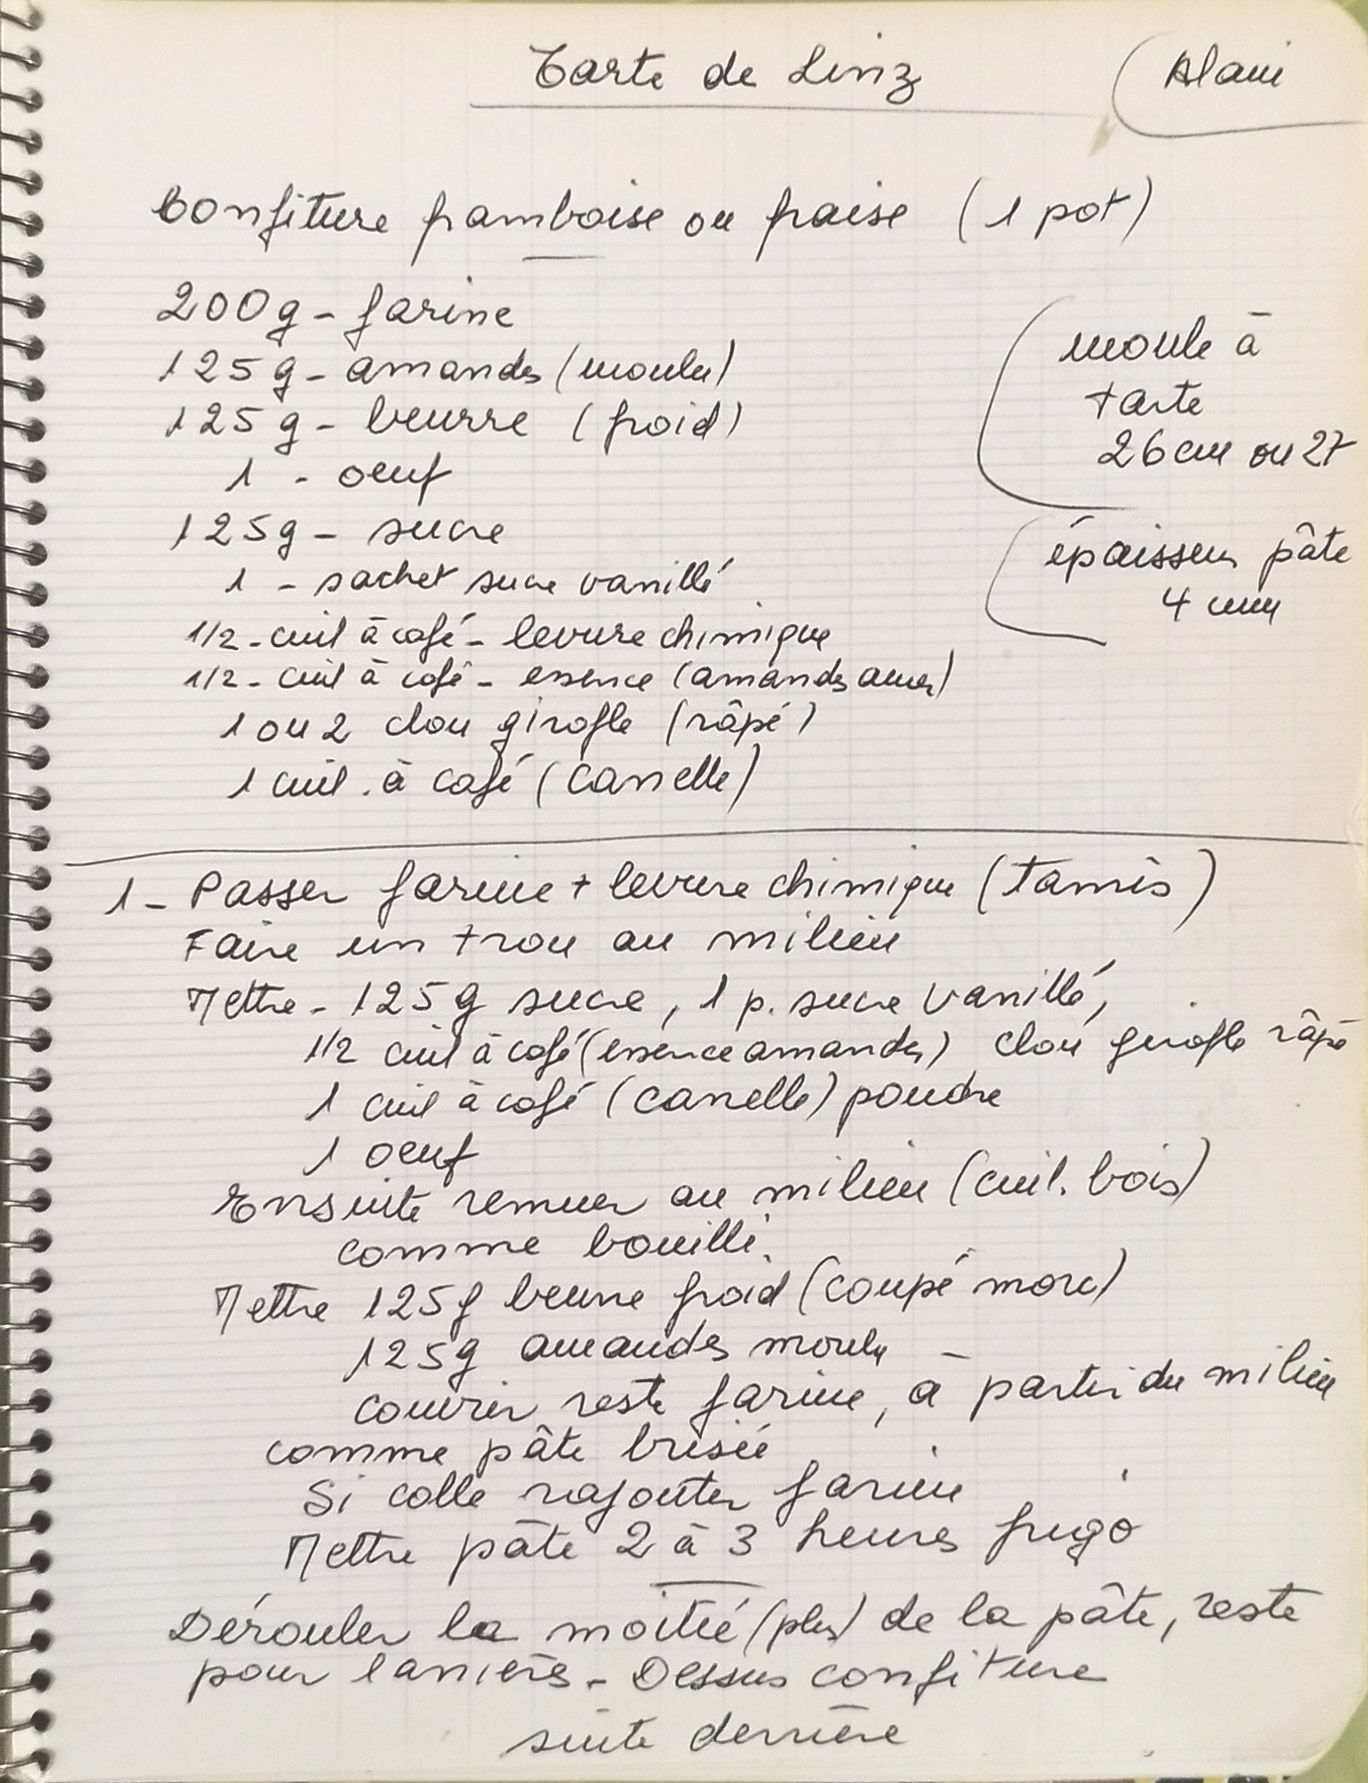 Tarte de Linz
Alain
Confiture framboise ou fraise (1 pot)
200g - farine
125g - amandes (moulu)
125g - beurre (froid)
1 - oeuf
125g - sucre
1 - sachet sucre vanillé
1/2 - cuil à café - levure chimique
1/2 - cuil à café - essence (amandes amer)
1 ou 2 clou girofle (râpé)
1 cuil. à café (canelle)
moule à
tarte
26 cm ou 27
épaisseur pâte
4 mm
1 - Passer farine + levure chimique (tamis)
Faire un trou au milieu
Mettre - 125g sucre, 1 p. sucre vanillé,
1/2 cuil à café (essence amandes) clou girofle râpé
1 cuil à café (canelle) poudre
1 oeuf
Ensuite remuer au milieu (cuil. bois)
comme bouilli.
Mettre 125g beurre froid (coupé morc)
125g amandes moulu
couvrir reste farine, à partir du milieu
comme pâte brisée
Si colle rajouter farine
Mettre pâte 2 à 3 heures frigo
Dérouler la moitié (plus) de la pâte, reste
pour lanières - Dessus confiture
suite derrière